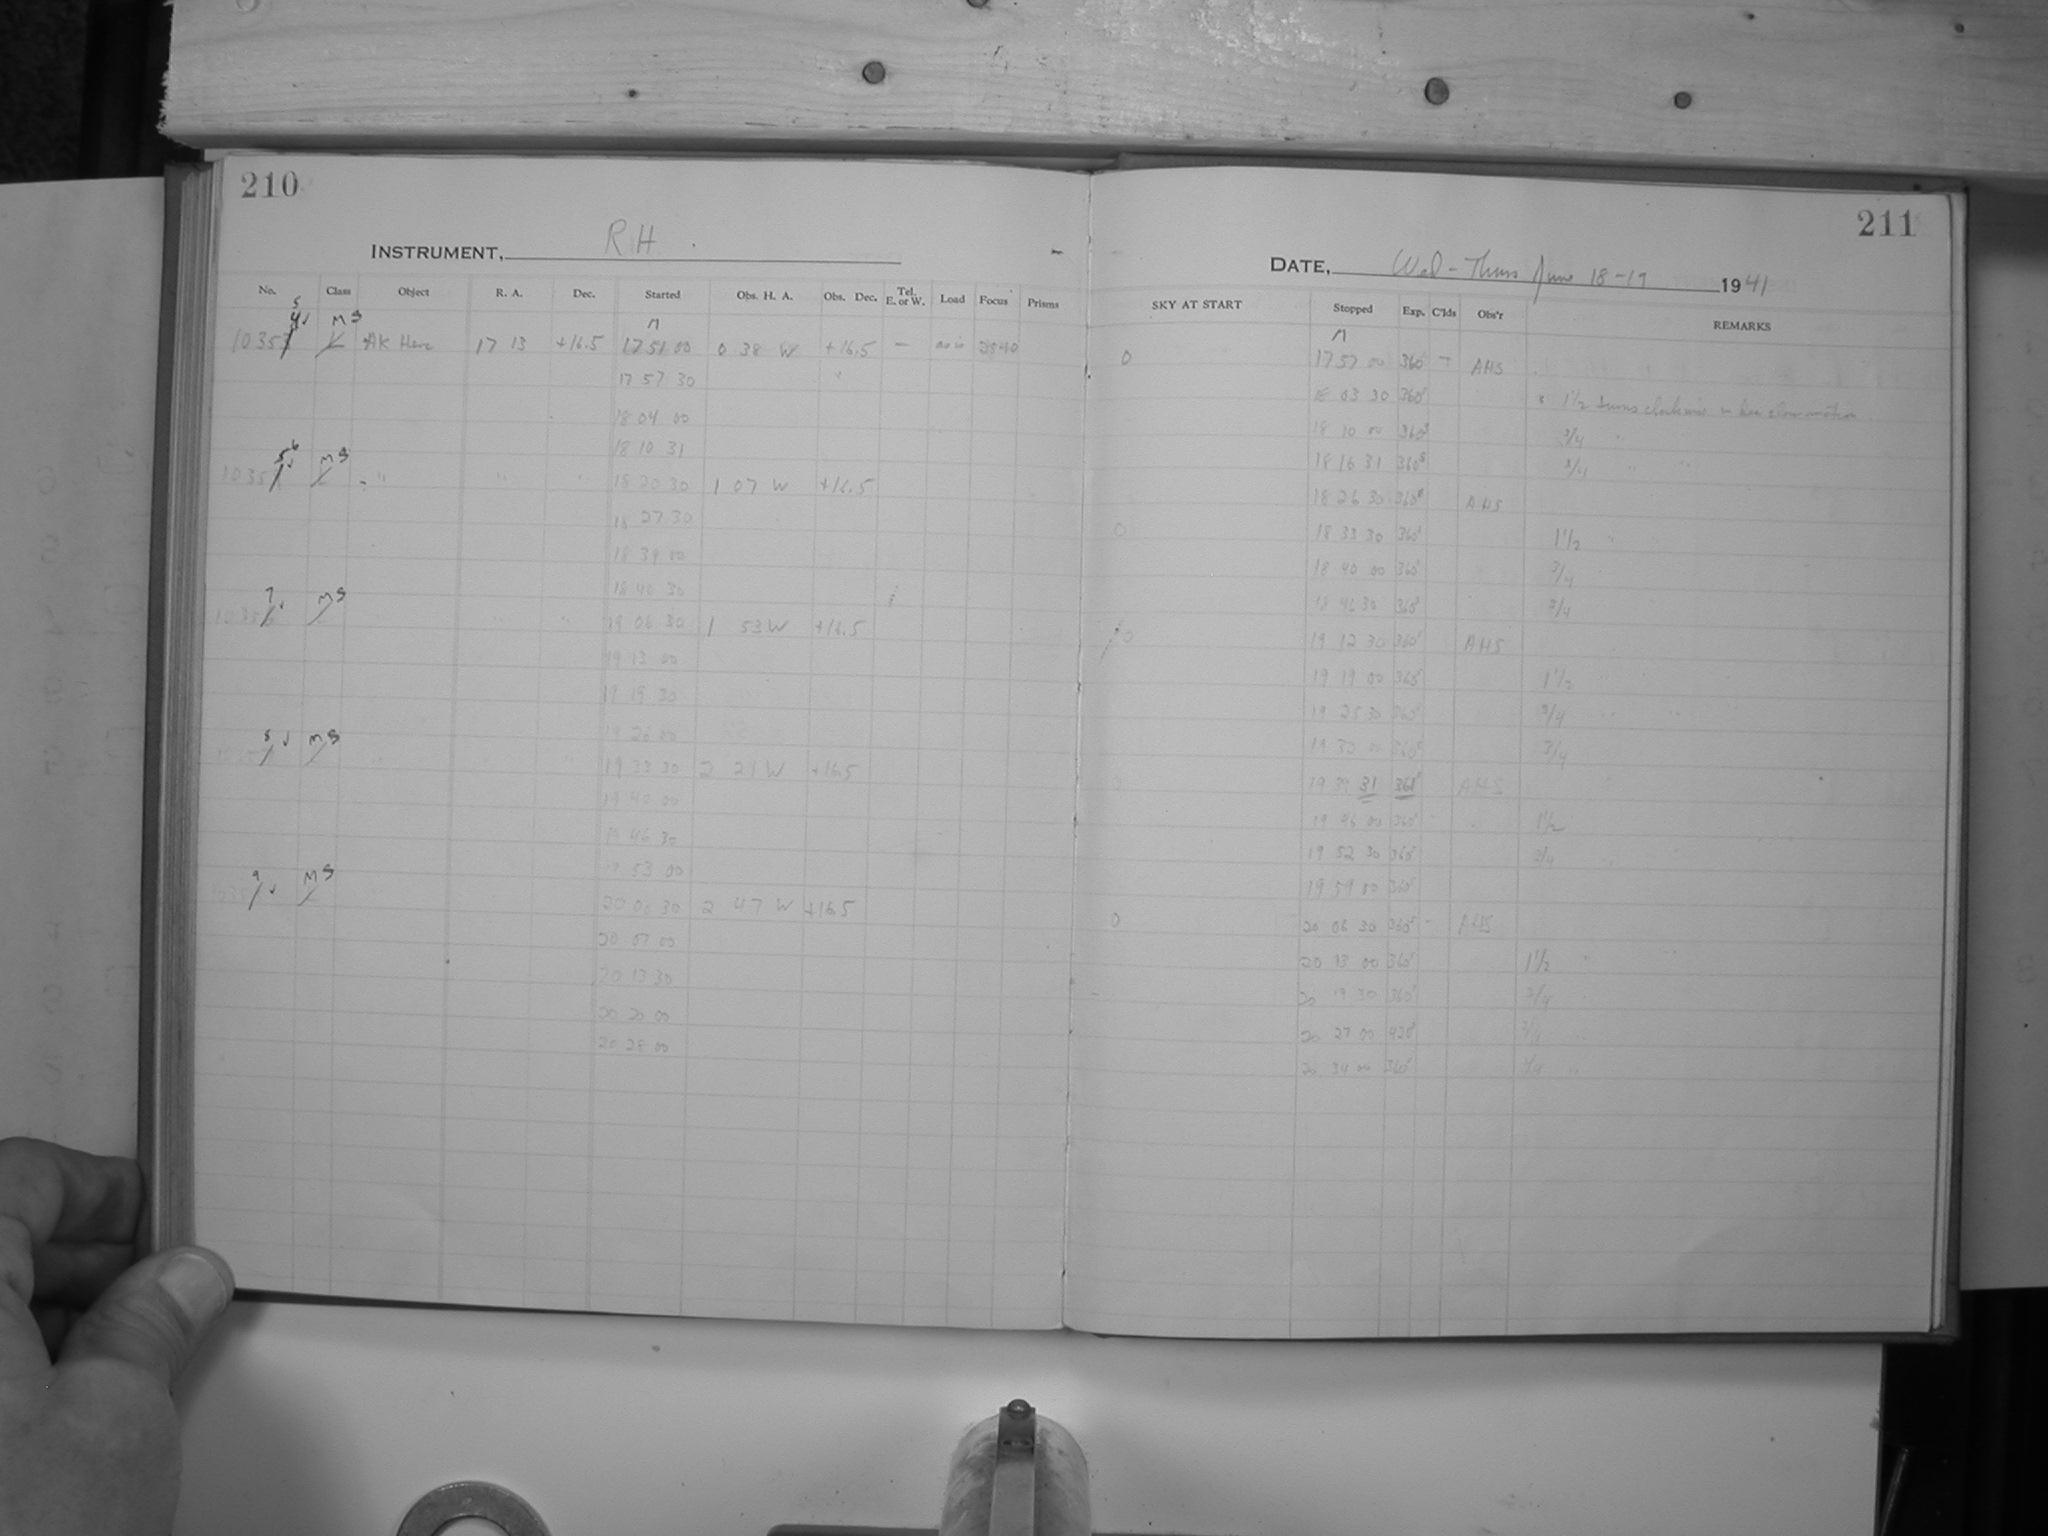 210
INSTRUMENT, RH.
No. Class Object R. A. Dec. Started Obs. H. A. Obs. Dec. Tel. E. or W. Load Focus Prisms
5
4 MS
1035 AK Herc 17 13 +16.5 17 51 00 0 38 W +16.5 —
17 57 30
18 04 00
18 10 31
6 MS
1035 " " " 18 20 30 1 07 W +16.5
18 27 30
18 34 00
18 40 30
7 MS
1035 19 06 30 1 53 W +16.5
19 13 00
19 19 30
19 26 00
8 MS
19 33 30 2 21 W +16.5
19 40 00
19 46 30
19 53 00
9 MS
20 00 30 2 47 W +16.5
20 07 00
20 13 30
20 20 00
20 28 00
211
DATE, Wed - Thurs June 18-19 1941
SKY AT START Stopped Exp. C'lds Obs'r REMARKS
0 17 57 00 360 - AHS
18 03 30 360s 1 1/2 turns clockwise in slow motion
18 10 00 360s 3/4 "
18 16 31 360s 3/4 " "
18 26 30 360s AHS
0 18 33 30 360s 1 1/2 "
18 40 00 360s 3/4
18 46 30 360s 3/4
0 19 12 30 360s AHS
19 19 00 360s 1 1/2
19 25 30 360s 3/4 " "
19 32 00 360s 3/4
0 19 39 31 361s AHS
19 46 00 360s 1 1/2
19 52 30 360s 3/4
19 59 00 360s
0 20 06 30 360s - AHS
20 13 00 360s 1 1/2 "
20 19 30 360s 3/4 "
20 27 00 420s 3/4
20 34 00 360s "